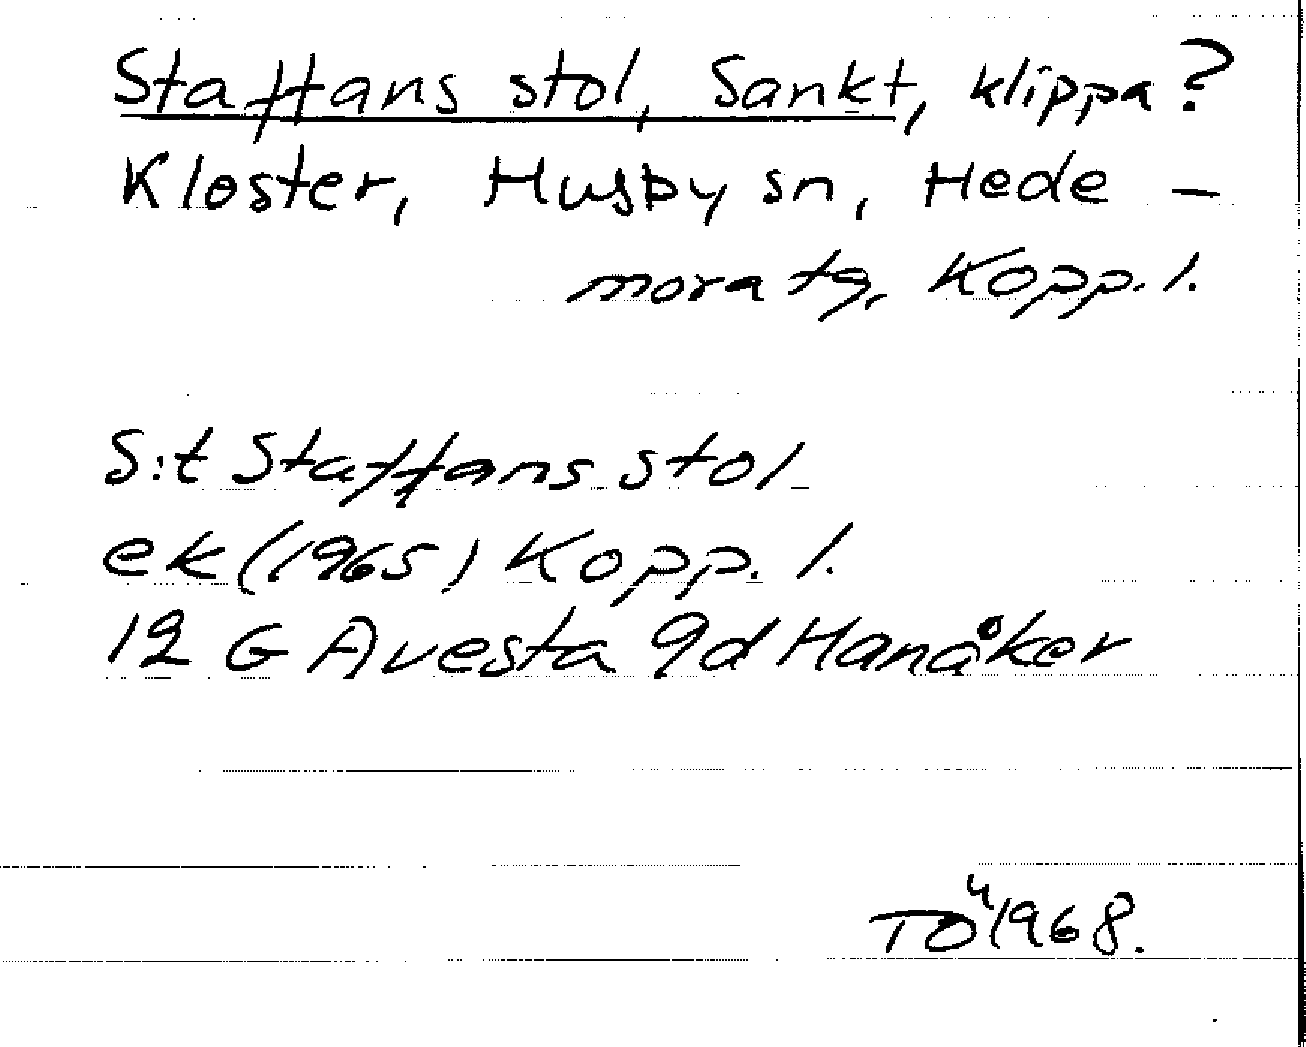 Staffans stol, Sankt, klippa?
Kloster, Husby sn, Hede -
mora tg, Kopp. l.
S:t Staffans stol
ek (1965) Kopp. l.
12 G Avesta 9d Hanåker
TÖ 1968.